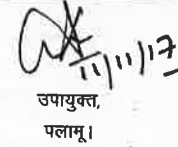 11/11/17
उपायुक्त,
पलामू।